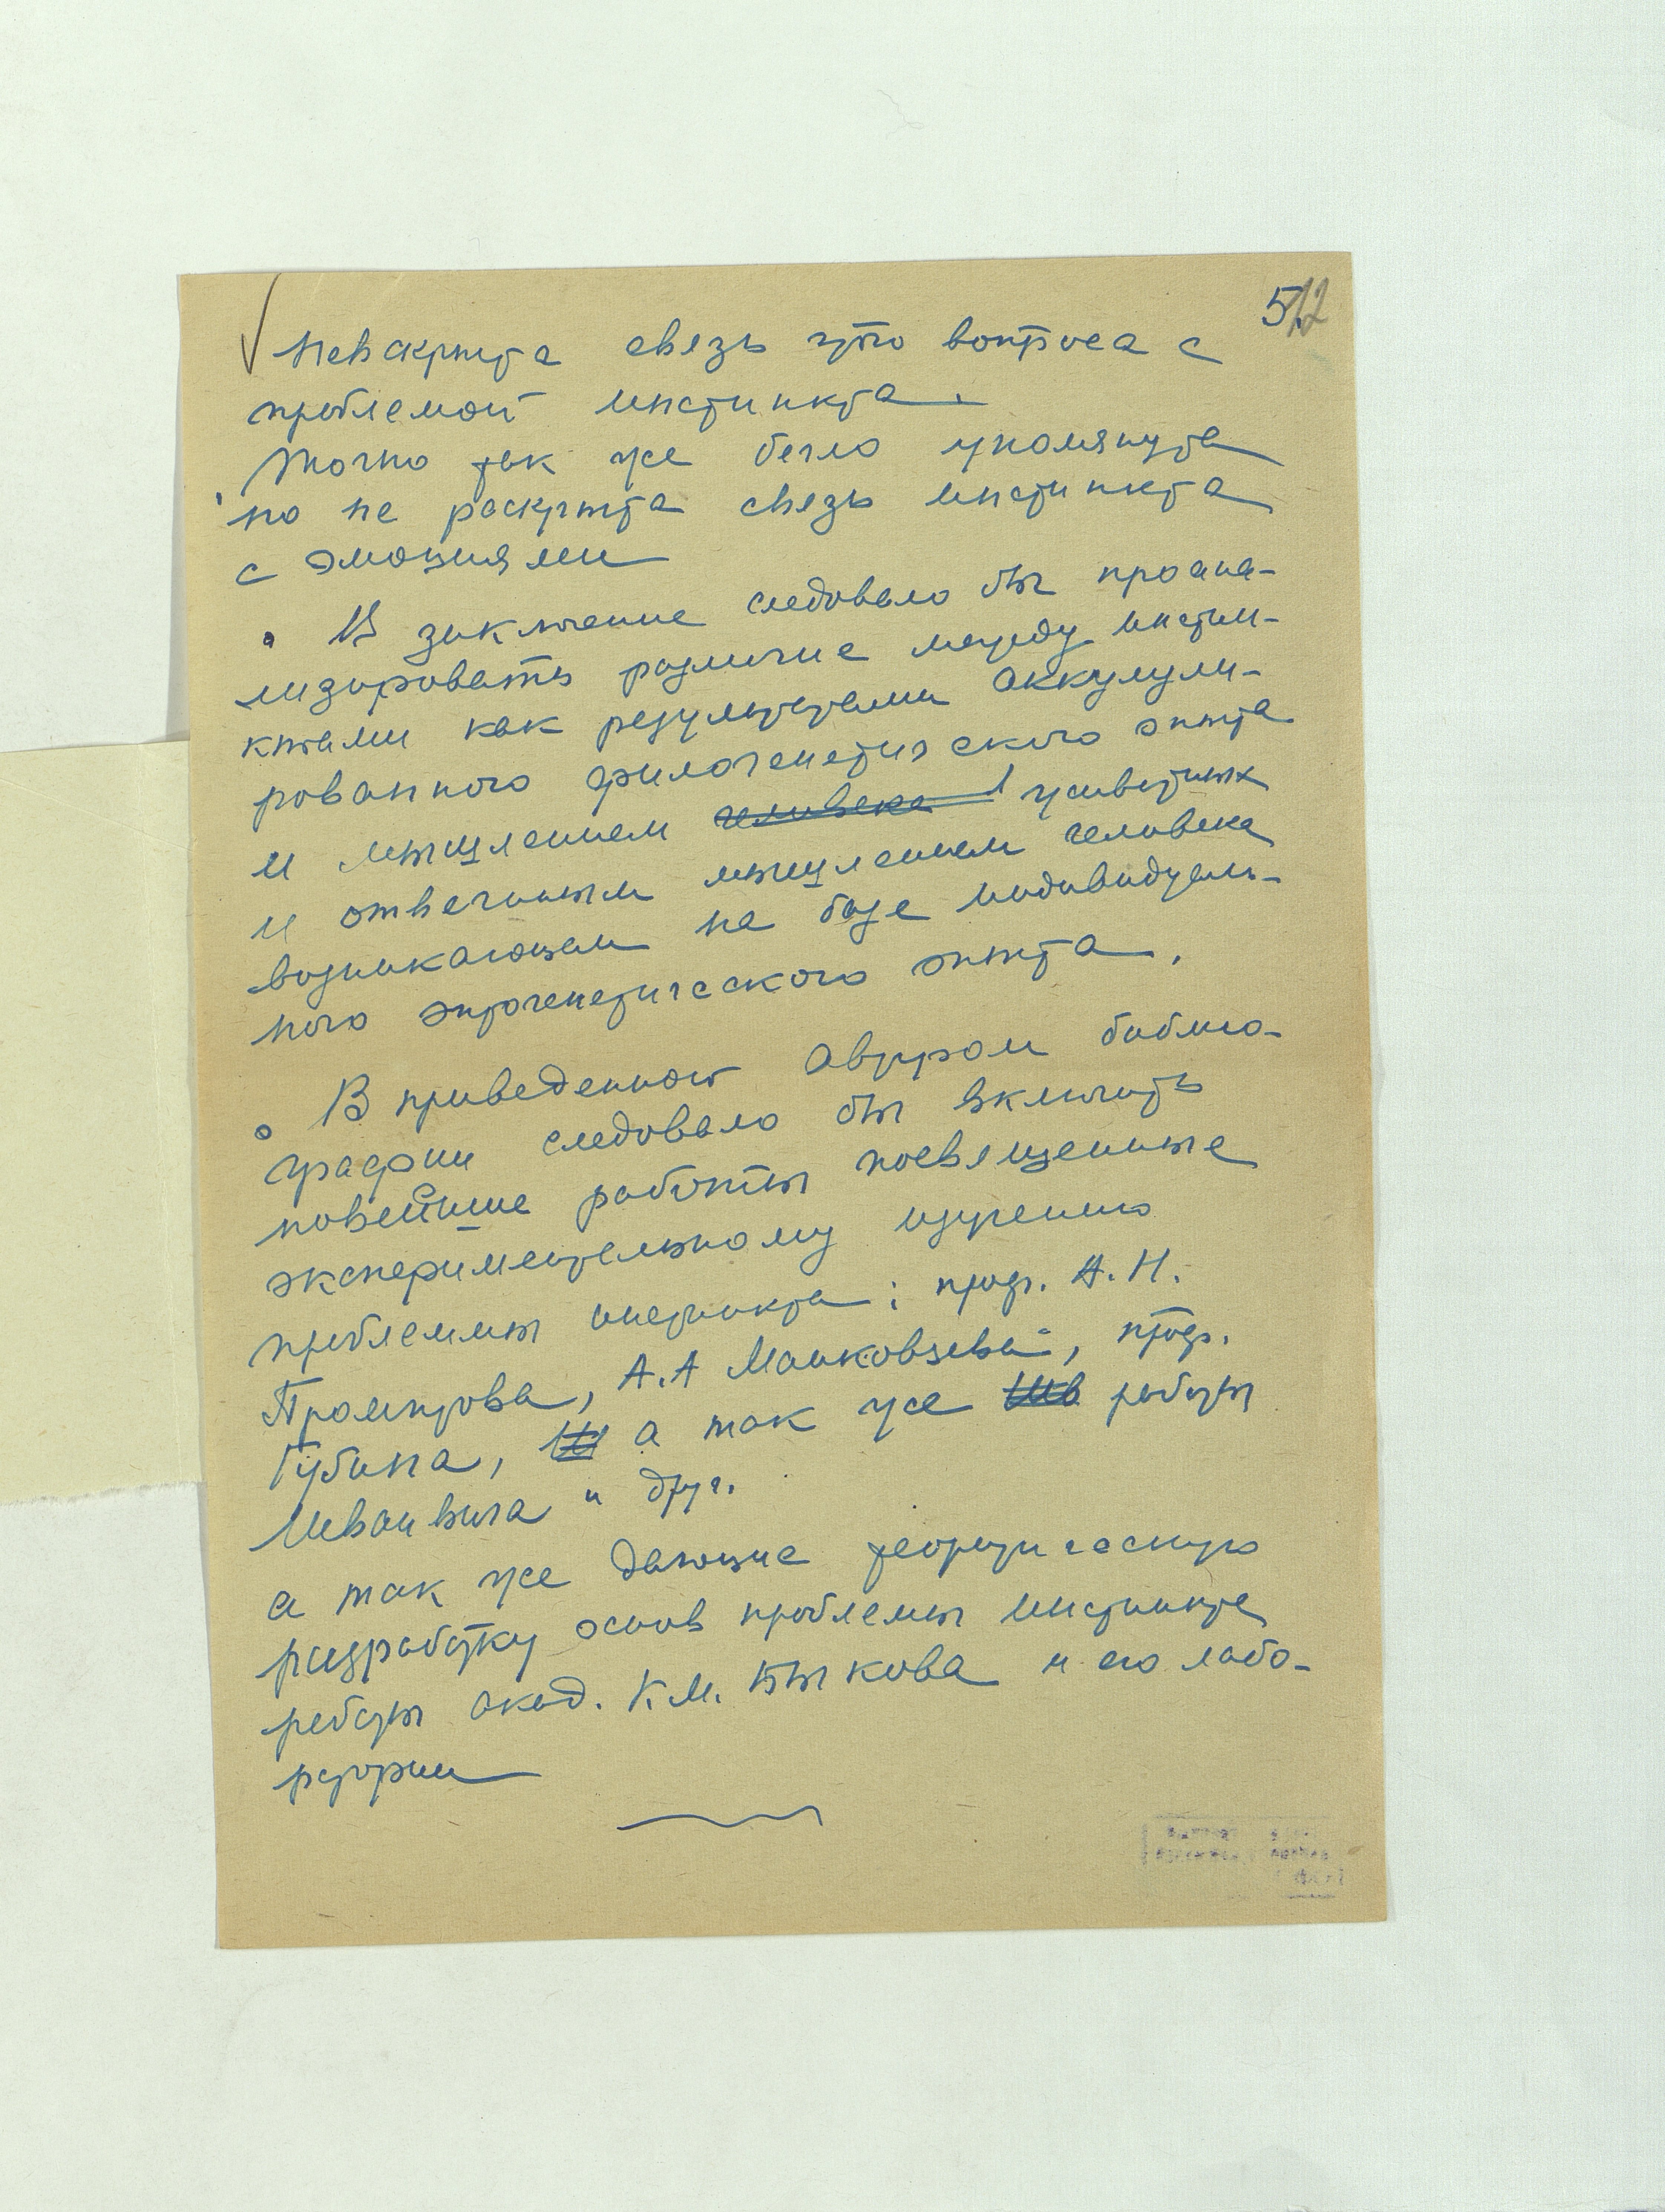 5.
12
Невскрыта связь этого вопроса с
проблемой инстинкта.
Точно так же бегло упомянута
но не раскрыта связь инстинкта
с эмоциями
В заключение следовало бы проана-
лизировать различие между инстин-
ктами как результатами аккумули-
рованного филогенетического опыта
и мышлением человека животных
и отвлеченным мышлением человека
возникающем на базе индивидуаль-
ного онтогенетического опыта.
В приведенной автором библио-
графии следовало бы включить
новейшие работы посвященные
экспериментальному изучению
проблеммы инстинкта: проф. А.Н.
Промптова, А.А Машковцева, проф.
Губина, а так же работы
Ивановича и друг.
а так же дающие теоретическую
разработку основ проблемы инстинкта
работы акад. К.М. Быкова и его лабо-
ратории